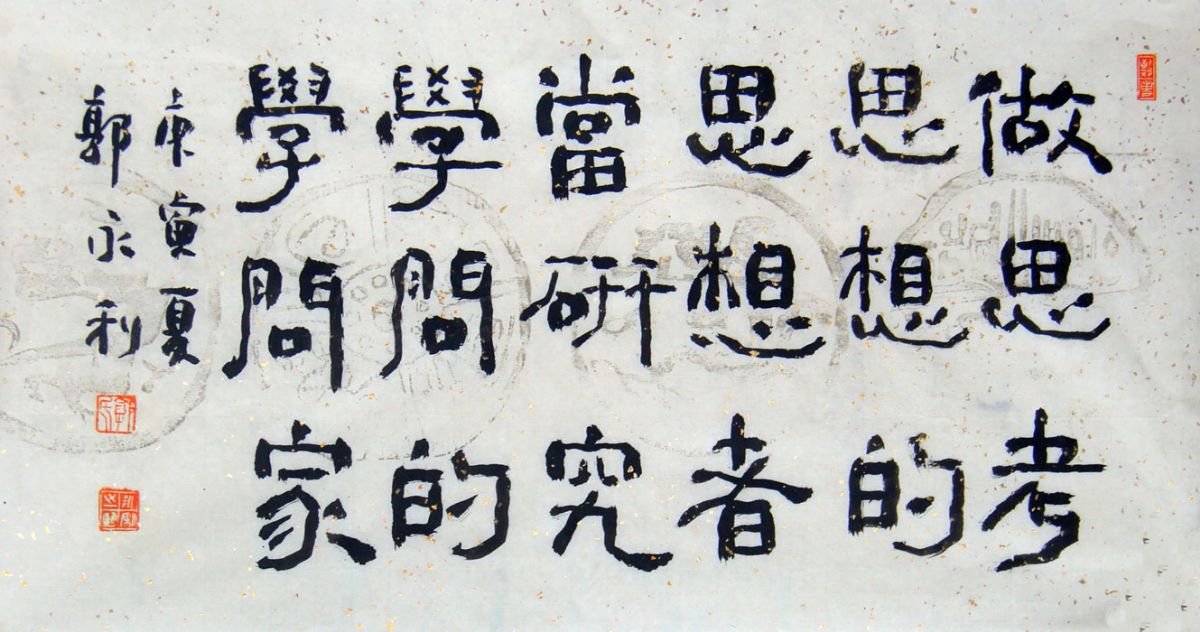 做思考
思想的
思想者
當研究
學問的
學問家
庚寅夏
郭永利